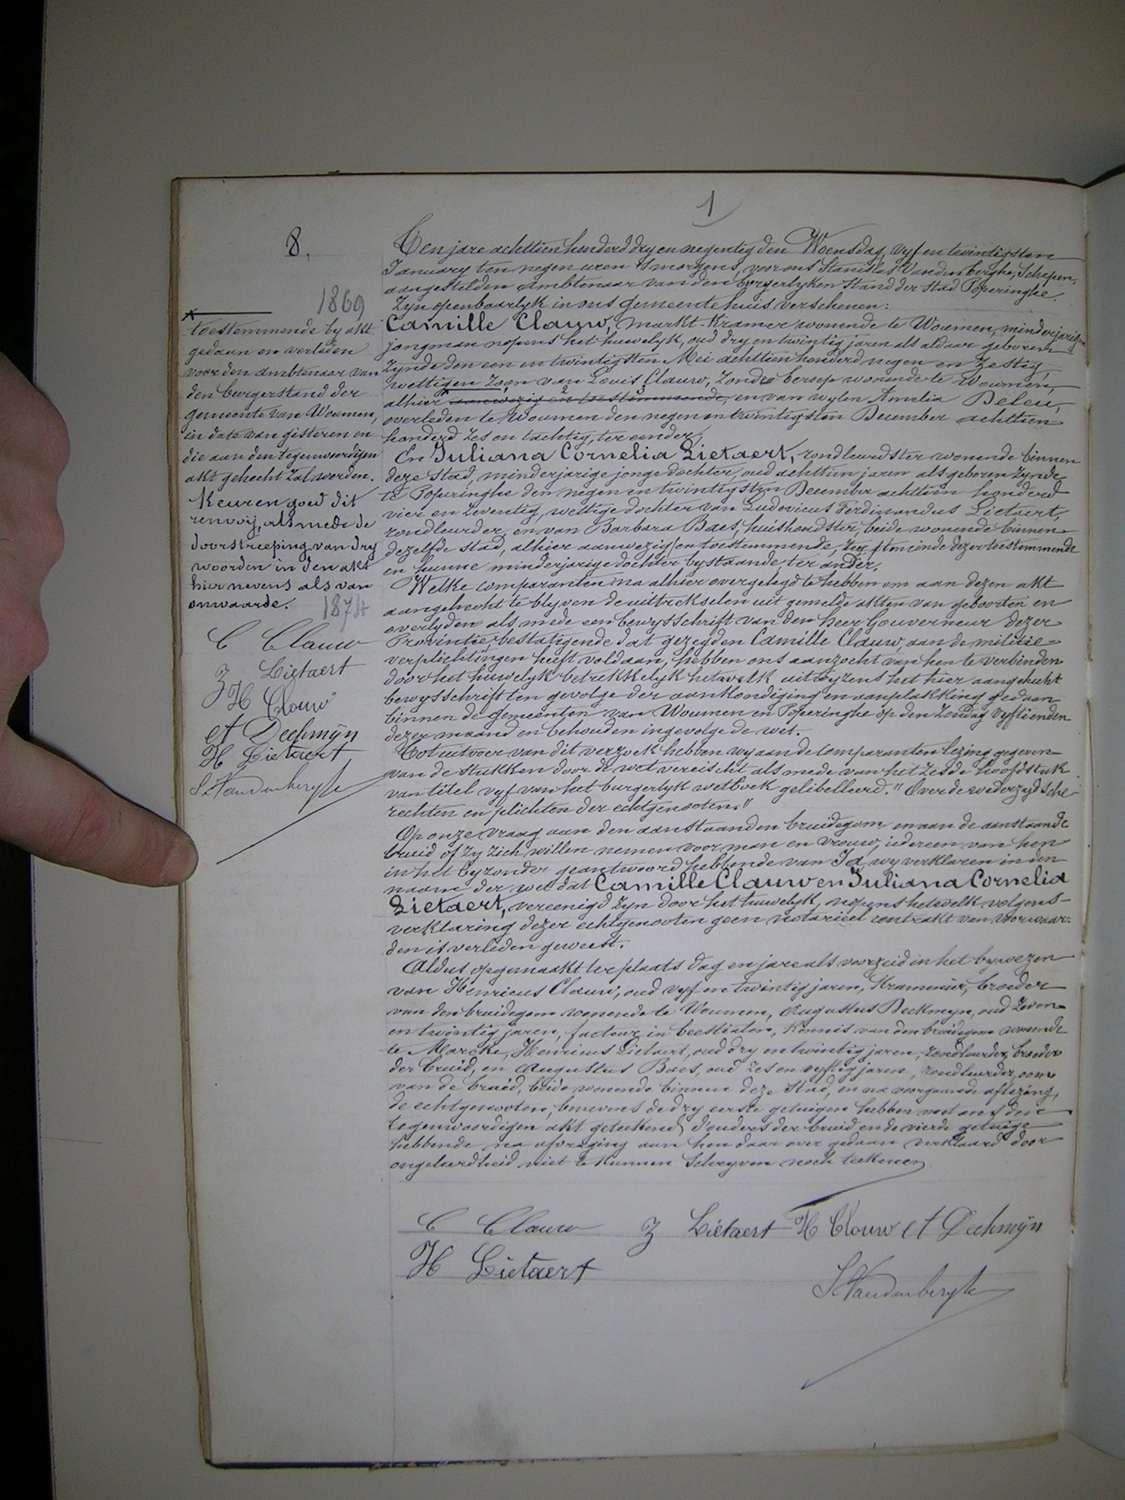 1
8.
Ten jare achttien honderd dry en negentig den Woensdag, vyf en twintigsten
January ten negen uren 's morgens, voor ons Stanislas Vandenberghe, Schepen,
aangestelden Ambtenaar van den borgerlyken Stand der Stad Poperinghe
zyn openbaarlyk in ons gemeentehuis verschenen:
Camille Clauw, markt-Kramer wonende te Woumen, minderjarigen
jongman nopens het huwelyk, oud dry en twintig jaren als aldaar geboren
zynde den een en twintigsten Mei achttien honderd negen en Zestig,
wettigen zoon van Louis Clauw, Zonder beroep wonende te Woumen,
alhier aanwezig en toestemmende, en van wylen Amelia Deleu,
overleden te Woumen den negen en twintigsten December achttien
honderd zes en tachtig, ter eender,
En Juliana Cornelia Lietaert, rondleurdster wonende binnen
deze Stad, minderjarige jonge dochter, oud achttien jaren als geboren zynde
te Poperinghe den negen en twintigsten December achttien honderd
vier en Zeventig, wettige dochter van Ludovicus Ferdinandus Lietaert,
rondleurder, en van Barbara Baes, huishoudster, beide wonende binnen
dezelfde Stad, alhier aanwezig en toestemmende, dezer toestemmende
en hunne minderjarige dochter bystaande, ter ander.
Welke comparanten na alhier overgelegd te hebben om aan dezen akt
aangehecht te blyven de uittrekselen uit gemelde akten van geboorten en
overlyden als mede een bewysschrift van den heer Gouverneur dezer
Provintie bestatigende dat gezegden Camille Clauw, aan de militie-
verplichtingen heeft voldaan, hebben ons aanzocht van hen te verbinden
door het huwelyk betrekkelyk hetwelk uitwyzens het hier aangehecht
bewysschrift ten gevolge der aankondiging en aanplakking gedaan
binnen de gemeenten van Woumen en Poperinghe op den Zondag vyftienden
dezer maand en behouden ingevolge de wet.
Tot uitvoer van dit verzoek hebben wy aan de comparanten lezing gegeven
van de stukken door de wet vereischt als mede van het Zesde hoofdstuk
van titel vyf van het burgerlyk wetboek gelibelleerd: "Over de wederzydsche
rechten en plichten der echtgenooten."
Op onze vraag aan den aanstaanden bruidegom en aan de aanstaande
bruid of zy zich willen nemen voor man en vrouw, iedereen van hen
in het byzonder geantwoord hebbende van Ja, wy verklaren in den
naam der wet dat Camille Clauw en Juliana Cornelia
Lietaert, vereenigd zyn door het huwelyk, nopens hetwelk volgens
verklaring dezer echtgenooten geen notarieel contrakt van Voorwaar-
den is verleden geweest.
Aldus opgemaakt ter plaats dag en jare als voorzeid in het bywezen
van Henricus Clauw, oud vyf en twintig jaren, Kramer, broeder
van den bruidegom wonende te Woumen, Augustus Deckmyn, oud Zeven
en twintig jaren, facteur in beestialen, Kennis van den bruidegom wonende
te Marcke, Henricus Lietaert, oud dry en twintig jaren, rondleurder, broeder
der bruid, en Augustus Baes, oud Zes en vyftig jaren, rondleurder, oom
van de bruid, beide wonende binnen deze Stad, en na voorgaande aflezing,
de echtgenooten, benevens de dry eerste getuigen hebben met ons den
tegenwoordigen akt geteekend, d'ouders der bruid en de vierde getuige
hebbende na afvraging aan hen daar over gedaan verklaard door
ongeleerdheid niet te kunnen Schryven noch teekenen
C Clauw J Lietaert H Clouw et Dechmÿn
H Lietaert
St Vandenberghe
1869
toestemmende by akt
gedaan en verleden
voor den ambtenaar van
den borgerstand der
gemeente van Woumen,
in date van gisteren en
die aan den tegenwoordigen
akt gehecht zal worden.
Keuren goed dit
renvoij, als mede de
doorstreeping van dry
woorden in den akt
hier nevens als van
onwaarde.
1874
C Clauw
J Lietaert
H Clouw
et Dechmÿn
H Lietaert
St Vandenberghe